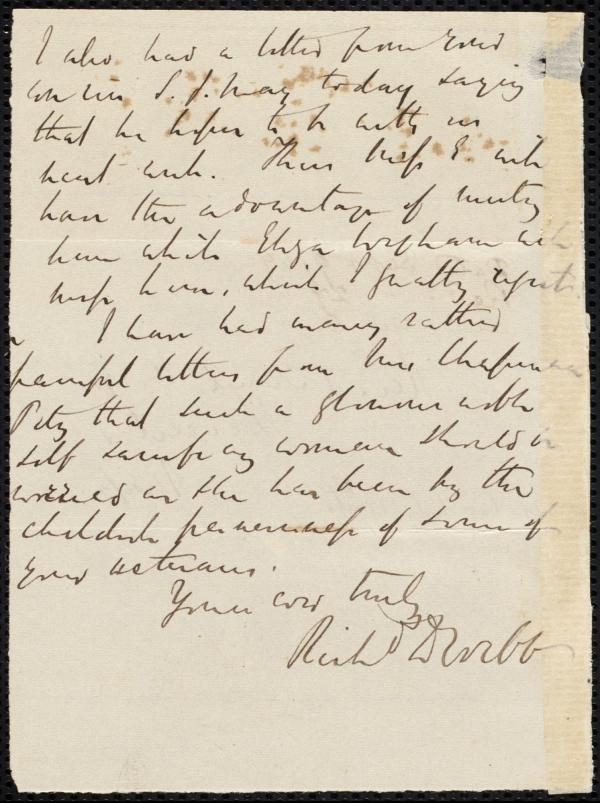 I also had a letter from your
cousin S. J. May today saying
that he hopes to be with us
next week. Thus Miss E. will
have the advantage of meeting
him while Eliza Wigham will
miss him, which I greatly regret.
I have had many rather
painful letters from Mrs Chapman
Pity that such a glorious noble
self sacrificing woman should be
worried as she has been by the
childish perverseness of some of
your veterans.
Yours very truly
Richd D Webb